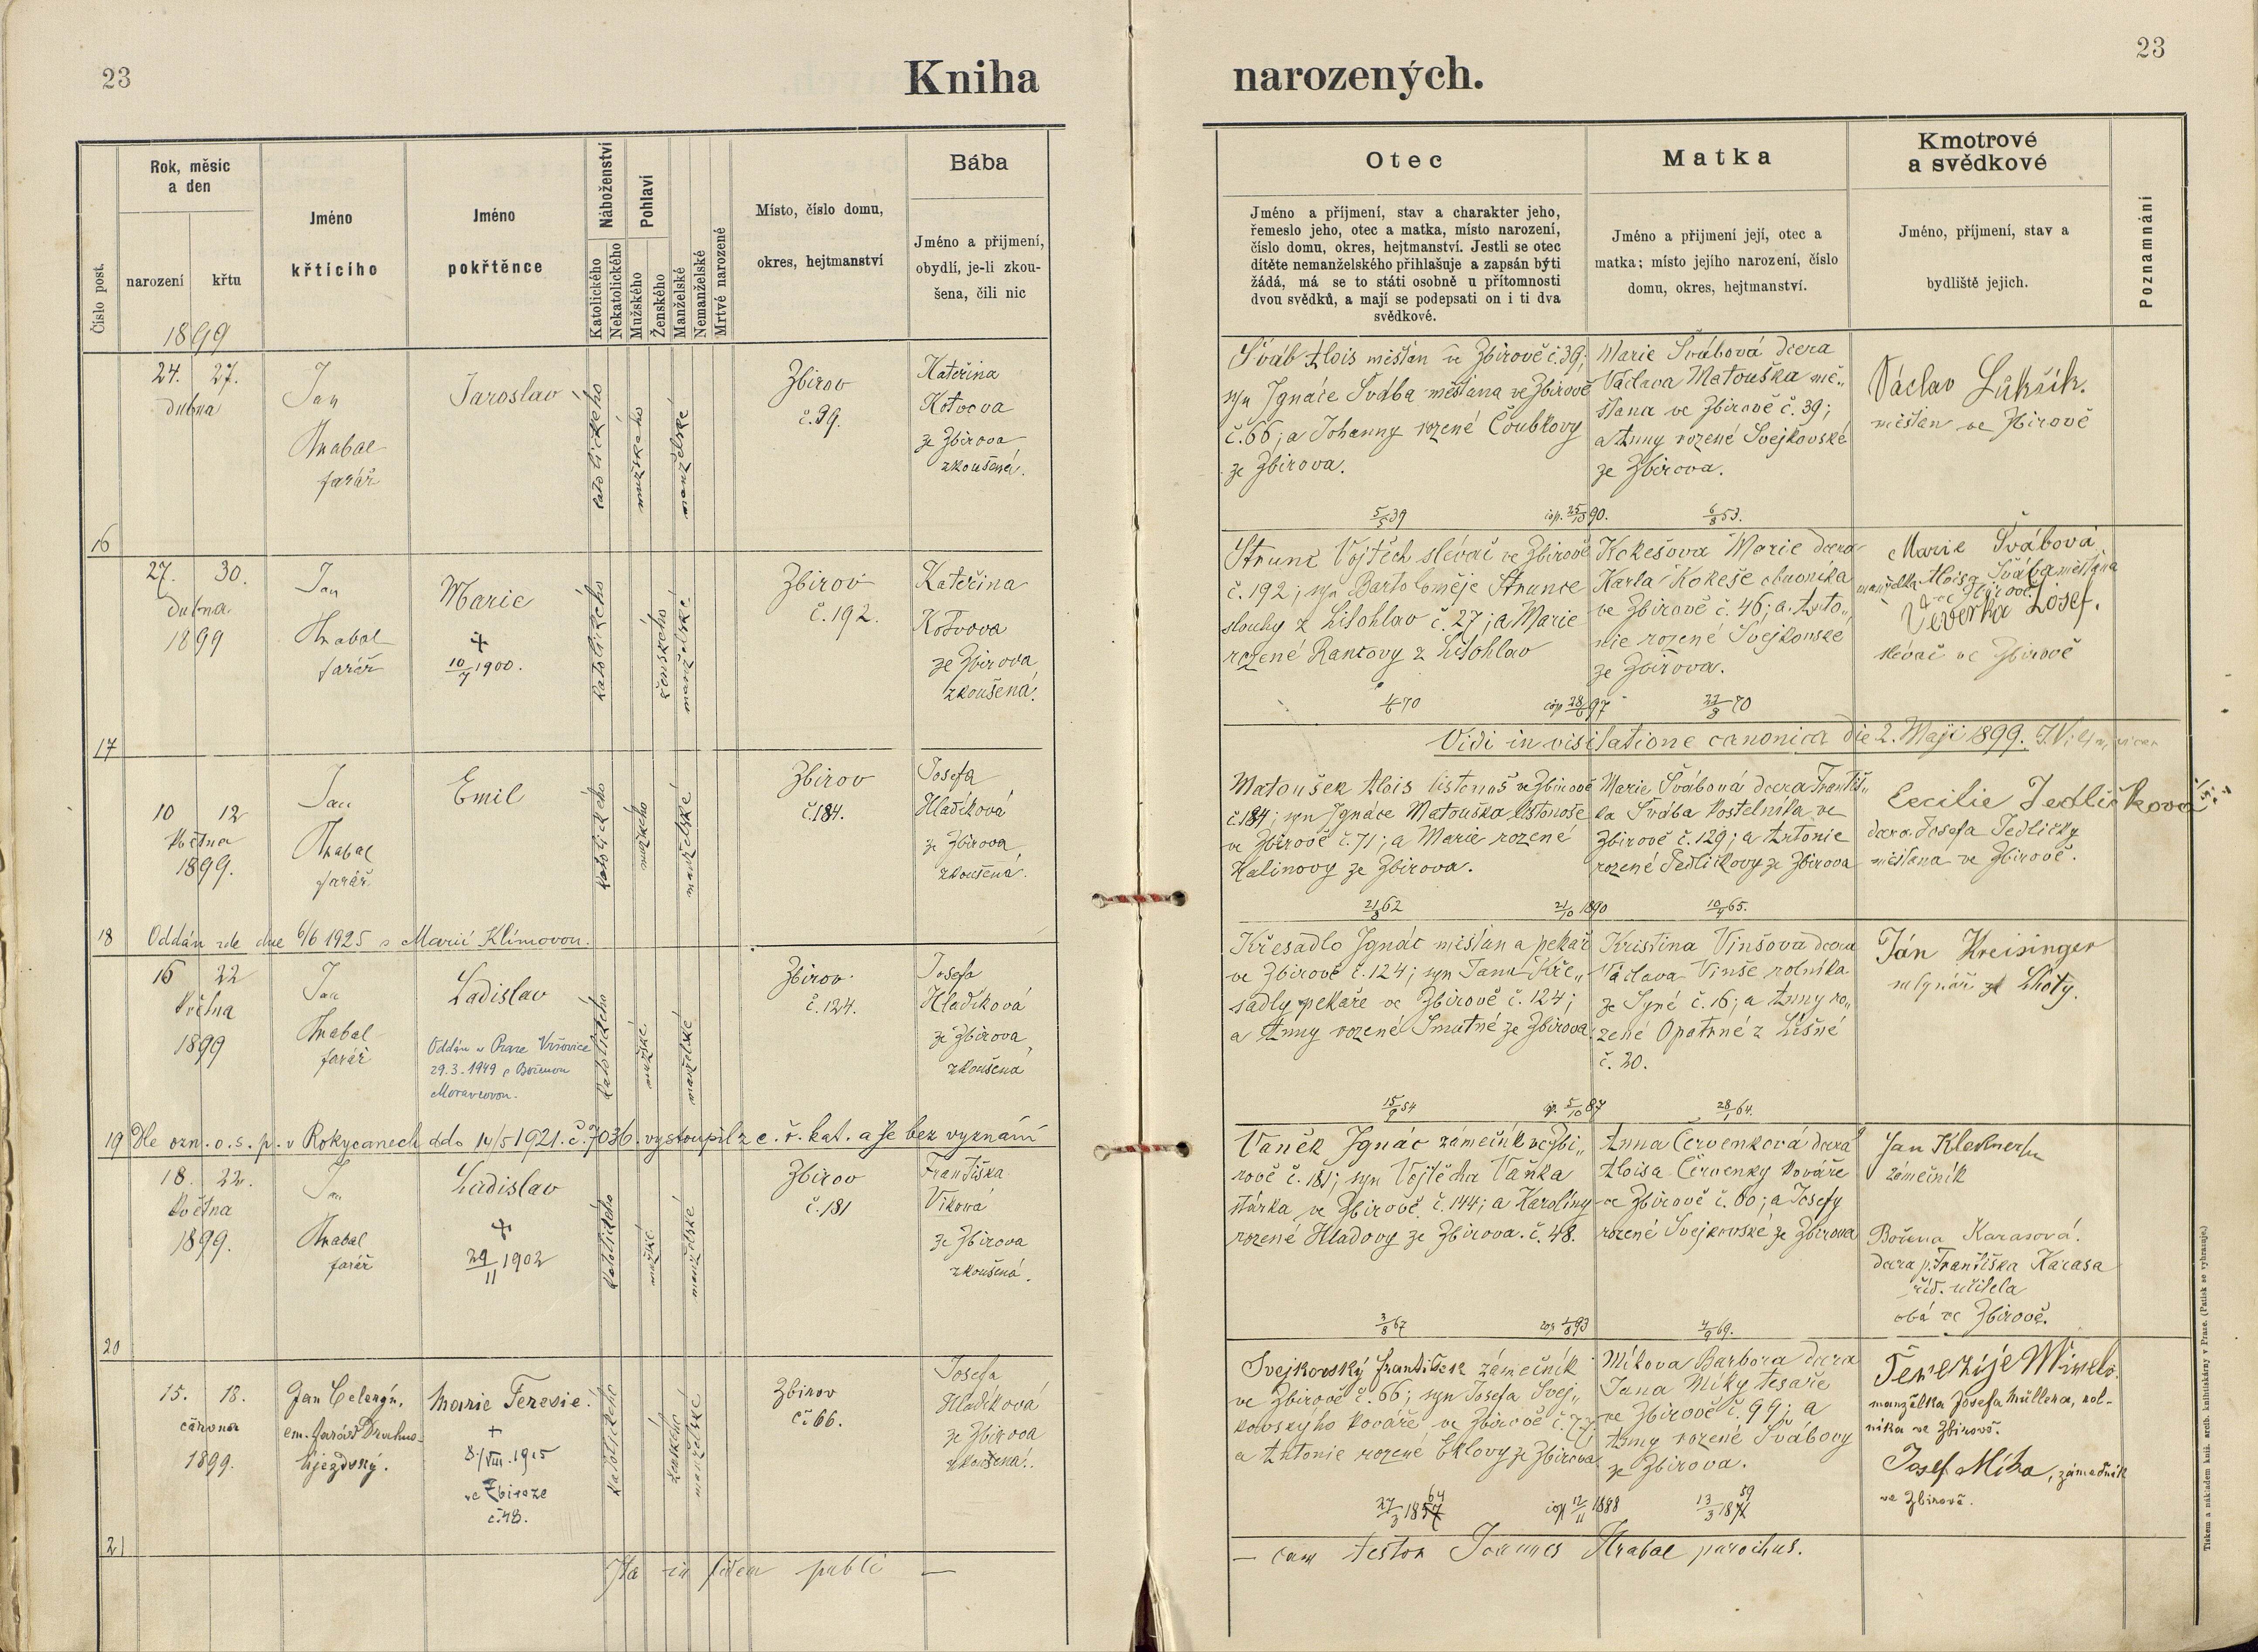 23
Kniha
narozených.
23
Číslo post.
Rok, měsíc
a den
narození
křtu
1899
Jméno
křticího
Jméno
pokřtěnce
Náboženství
Katolického
Nekatolického
Pohlaví
Mužského
Ženského
Manželské
Nemanželské
Mrtvě narozené
Místo, číslo domu,
okres, hejtmanství
Bába
Jméno a přijmení,
obydlí, je-li zkou-
šena, čili nic
Otec
Jméno a příjmení, stav a charakter jeho,
řemeslo jeho, otec a matka, místo narození,
číslo domu, okres, hejtmanství. Jestli se otec
dítěte nemanželského přihlašuje a zapsán býti
žádá, má se to státi osobně u přítomnosti
dvou svědků, a mají se podepsati on i ti dva
svědkové.
Matka
Jméno a přijmení její, otec a
matka; místo jejího narození, číslo
domu, okres, hejtmanství.
Kmotrové
a svědkové
Jméno, příjmení, stav a
bydliště jejich.
Poznamnání
16
24. 27.
dubna
Jan
Hrabal
farář
Jaroslav
katolického
mužského
manželské
Zbirov
č. 39.
Kateřina
Kotvova
ze Zbirova
zkoušená.
Šváb Alois mišťan ve Zbirově č. 39;
syn Ignáce Švába měšťana ve Zbirově
č. 66; a Johanny rozené Čoubkovy
ze Zbirova.
5/5 39
cop. 90.
Marie Švábová dcera
Václava Matouška mě„
šťana ve Zbirově č. 39;
a Anny rozené Svejkovské
ze Zbirova.
6/8 53.
Václav Lukšík.
mišťan ve Zbirově
17
27. 30.
dubna
1899
Jan
Hrabal
farář
Marie
+
10/7 1900.
katolického
ženského
manželské
Zbirov
č. 192.
Kateřina
Kotvova
ze Zbirova
zkoušená.
Štrunc Vojtěch slévač ve Zbirově
č. 192; syn Bartoloměje Štrunce
slouhy z Lišohlav č. 27; a Marie
rozené Rancovy z Lišohlav
70
cop 28/6 97
Kokešova Marie dcera
Karla Kokeše obuvníka
ve Zbirově č. 46; a Anto„
nie rozené Svejkovské
ze Zbirova.
70
Marie Švábová
manželka Aloisa Švába měšťana
ve Zbirově.
Veverka Josef.
slévač ve Zbirově
Vidi in visitatione canonica die 2. Maji 1899.
18
10 12
května
1899.
Jan
Hrabal
farář
Emil
katolického
mužského
manželské
Zbirov
č. 184.
Josefa
Hladíková
ze Zbirova
zkoušená.
Oddán zde dne 6/6 1925 s Marií Klímovou.
Matoušek Alois listonoš ve Zbirově
č. 184; syn Ignáce Matouška listonoše
ve Zbirově č. 71; a Marie rozené
Kalinovy ze Zbirova.
21/8 62
21/10 1890
Marie Švábová dcera Františ„
ka Švába kostelníka ve
Zbirově č. 129; a Antonie
rozené Jedličkovy ze Zbirova
10/9 65.
Cecilie Jedličková
dcera Josefa Jedličky
mišťana ve Zbirově.
19
16 22
května
1899
Jan
Hrabal
farář
Ladislav
Oddán v Praze Vršovice
29.3.1949 s Boženou
Moravcovou.
katolického
mužské
manželské
Zbirov
č. 124.
Josefa
Hladíková
ze Zbirova
zkoušená
Dle ozn. o. s. p. v Rokycanech ddo 14/5 1921. č. 7036. vystoupil z c. ř. kat. a je bez vyznání
Křesadlo Ignác mišťan a pekař
ve Zbirově č. 124; syn Jana Kře„
sadly pekaře ve Zbirově č. 124;
a Anny rozené Smutné ze Zbirova.
15/9 54
cop. 5/10 87
Kristina Vinšova dcera
Václava Vinše rolníka
ze Syré č. 16; a Anny ro„
zené Opatrné z Líšné
č. 20.
28/1 64.
Ján Kreisinger
mlynář ze Lhoty.
20
18. 22.
května
1899.
Jan
Hrabal
farář
Ladislav
+
29/11 1902
katolického
mužské
manželské
Zbirov
č. 181
Františka
Viková
ze Zbirova
zkoušená.
Vaněk Ignác zámečník ve Zbi„
rově č. 181; syn Vojtěcha Vaňka
stárka ve Zbirově č. 144; a Karolíny
rozené Hladovy ze Zbirova. č. 48.
3/8 67
cop 93
Anna Červenková dcera
Aloisa Červenky kováře
ve Zbirově č. 60; a Josefy
rozené Svejkovské ze Zbirova
69.
zámečník
Božena Karasová.
dcera p. Františka Karasa
říd. učitela
oba ve Zbirově.
21
15. 18.
června
1899.
Jan Celeryn,
em. farář
Marie Teresie.
+
8/VIII. 1915
ve Zbiroze
č. 48.
katolického
ženského
manželské
Zbirov
č. 66.
Josefa
Hladíková
ze Zbirova
zkoušená.
Svejkovský František zámečník
ve Zbirově č. 66; syn Josefa Svej„
kovskýho kováře ve Zbirově č. 77;
a Antonie rozené Eklovy ze Zbirova.
27/3 1857 64
cop 12/11 1888
Míkova Barbora dcera
Jana Míky tesaře
ve Zbirově č. 99; a
Anny rozené Švábovy
ze Zbirova.
13/3 1871 59
manželka Josefa Müllera, rol-
níka ve Zbirově.
Josef Míka, zámečník
ve Zbirově.
Ita in fidem publi —
— cam testor Joannes Hrabal parochus.
Tiskem a nákladem kníž. arcib. knihtiskárny v Praze. (Patisk se vyhrazuje.)